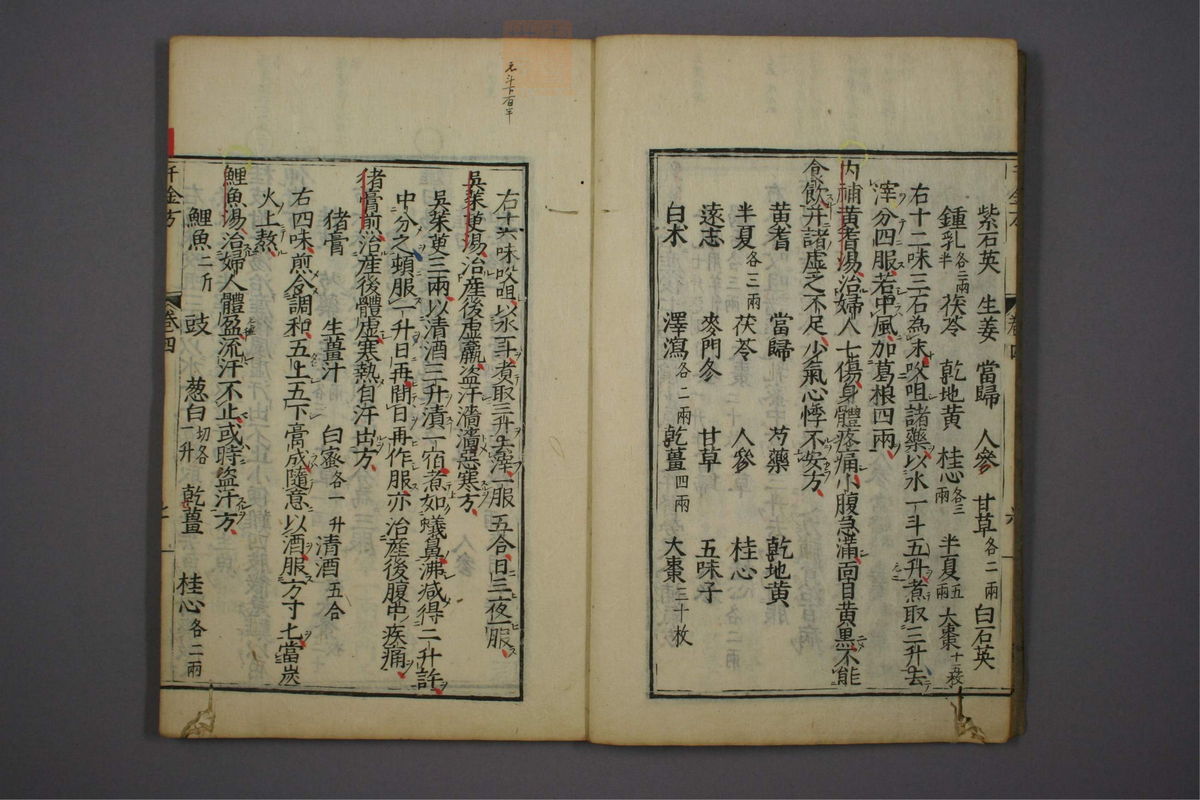 紫石英 生姜 當歸 人參 甘草各二兩 白石英
鍾乳各二兩半 茯苓 乾地黃 桂心各三兩 半夏五兩 大棗十五枚
右十二味三石為末㕮咀諸藥以水一斗五升煮取三升去
滓分四服若中風加葛根四兩
內補黃耆湯治婦人七傷身體疼痛小腹急滿面目黃黑不能
食飲并諸虛乏不足少氣心悸不安方
黃耆 當歸 芍藥 乾地黃
半夏各三兩 茯苓 人參 桂心
遠志 麥門冬 甘草 五味子
白朮 澤瀉各二兩 乾薑四兩 大棗三十枚
千金方 卷四
元斗下有半
右十六味㕮咀以水一斗煮取三升去滓一服五合日三夜一服
吳茱萸湯治產後虛羸盜汗濇濇惡寒方
吳茱萸三兩以清酒三升漬一宿煮如蟻鼻沸減得二升許
中分之頓服一升日再間日再作服亦治產後腹中疾痛
猪膏煎治產後體虛寒熱自汗出方
猪膏 生薑汁 白蜜各一升 清酒五合
右四味煎令調和五上五下膏成隨意以酒服方寸七當炭
火上熬
鯉魚湯治婦人體盈流汗不止或時盜汗方
鯉魚二斤 豉 葱白切各一升 乾薑 桂心各二兩
千金方 卷四